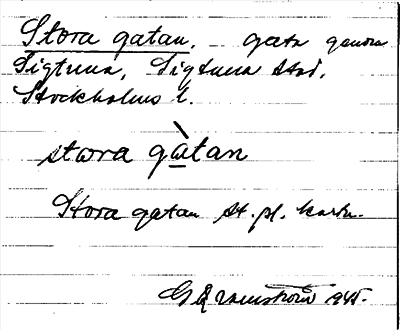 Stora gatan. gata genom
Sigtuna, Sigtuna stad,
Stockholms l.
stωra gàtan
Stora gatan st. pl. karta.
1945.